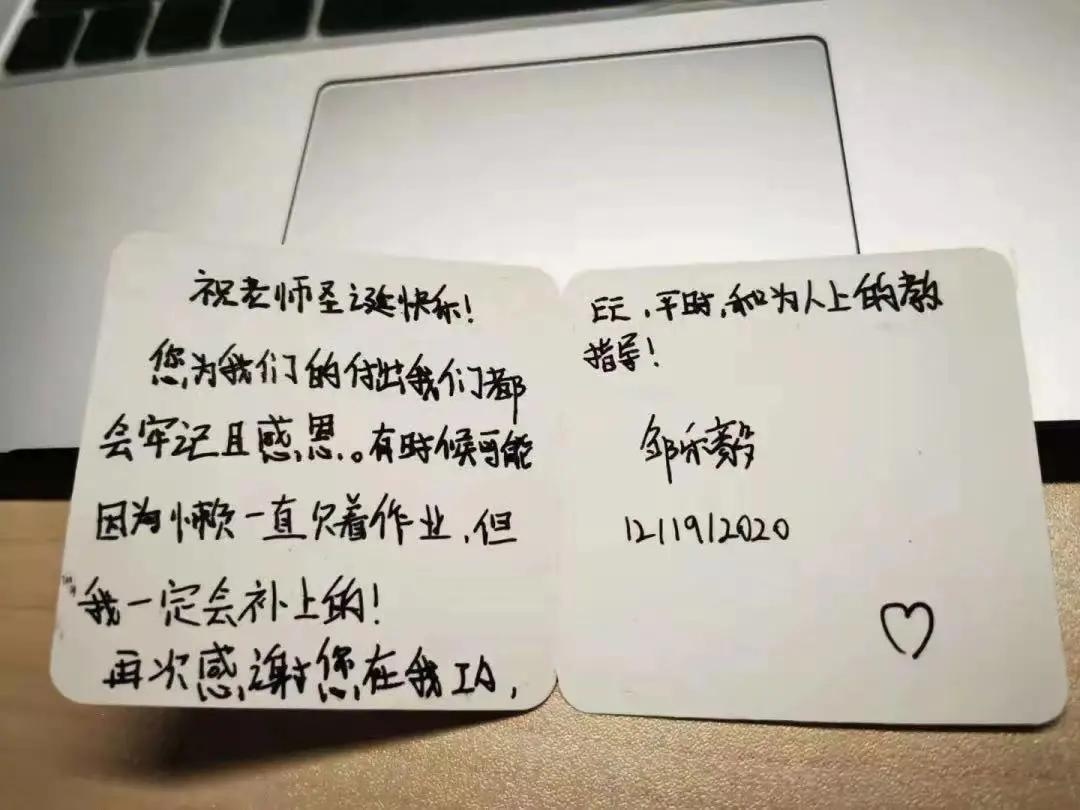 祝老师圣诞快乐!
您为我们的付出我们都
会牢记且感恩。有时候可能
因为懒一直欠着作业,但
我一定会补上的!
再次感谢您在我IA,
EE,平时,和为人上的教
指导!
邹乐毅
12/19/2020